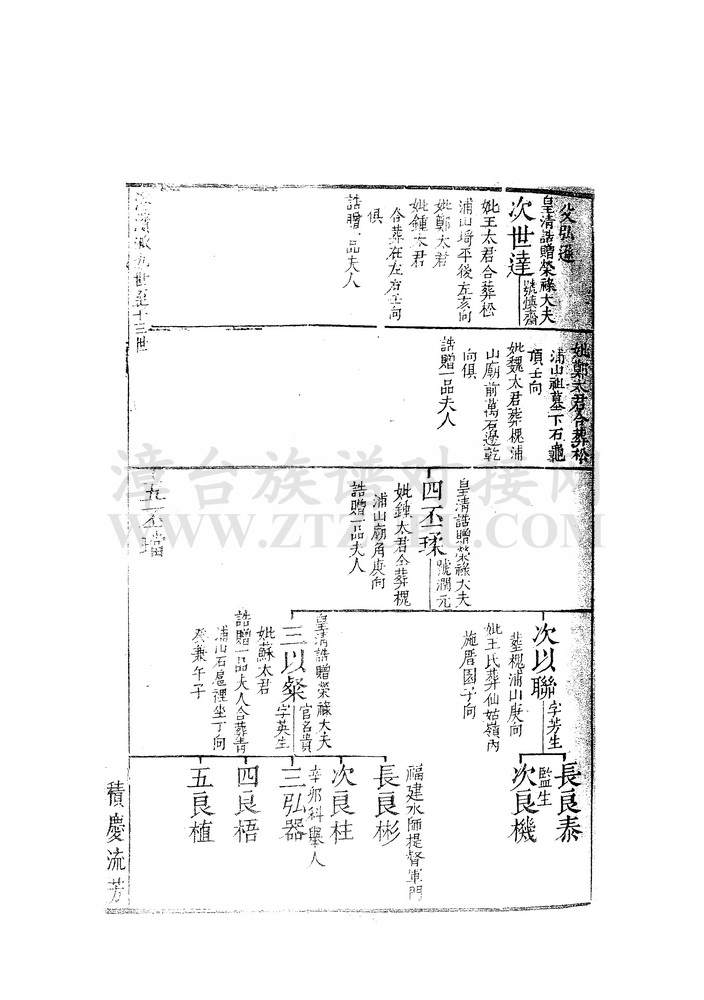 父弘遜
皇清誥贈榮祿大夫
次世達
號慎齋
妣王太君合葬松
浦山塆平後左亥向
妣鄭太君
妣鍾太君
合葬在左右壬向
俱
誥贈一品夫人
九世至十三世
妣鄭太君合葬松
浦山祖墓下石龜
頂壬向
妣魏太君葬槐浦
山廟前萬石邊乾
向俱
誥贈一品夫人
皇清誥贈榮祿大夫
四丕琛
號潤元
妣鍾太君合葬槐
浦山廟角庚向
誥贈一品夫人
五丕瑠
次以聯
字芳生
葬槐浦山庚向
妣王氏葬仙姑嶺內
施厝園子向
皇清誥贈榮祿大夫
三以粲
官名貴
字英生
妣蘇太君
誥贈一品夫人合葬青
浦山石扈裡坐丁向
癸兼午子
長良泰
監生
次良機
福建水師提督軍門
長良彬
次良柱
三弘器
辛卯科舉人
四良梧
五良植
積慶流芳
漳台族谱对接网
WWW.ZTZ